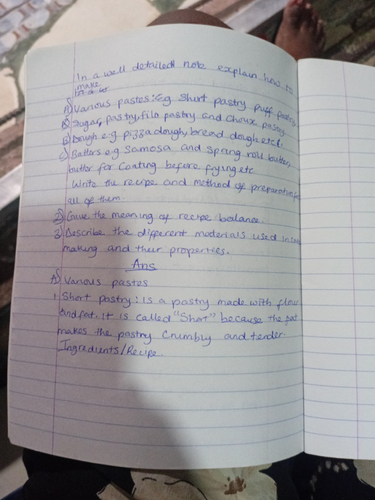 In a well detailed note explain how to
make
A) Various pastes: e.g Short pastry, puff pastry,
Sugar pastry, filo pastry and choux pastry
b) Dough e.g pizza dough, bread dough etc.
c) Batters e.g Samosa and spring roll butter,
butter for coating before frying etc
Write the recipe and method of preparation for
all of them
2) Give the meaning of recipe balance.
3) Describe the different materials used in
making and their properties.
Ans
A) Various pastes
1. Short pastry: is a pastry made with flour
and fat. It is called "Short" because the fat
makes the pastry crumbly and tender
Ingredients/Recipe.